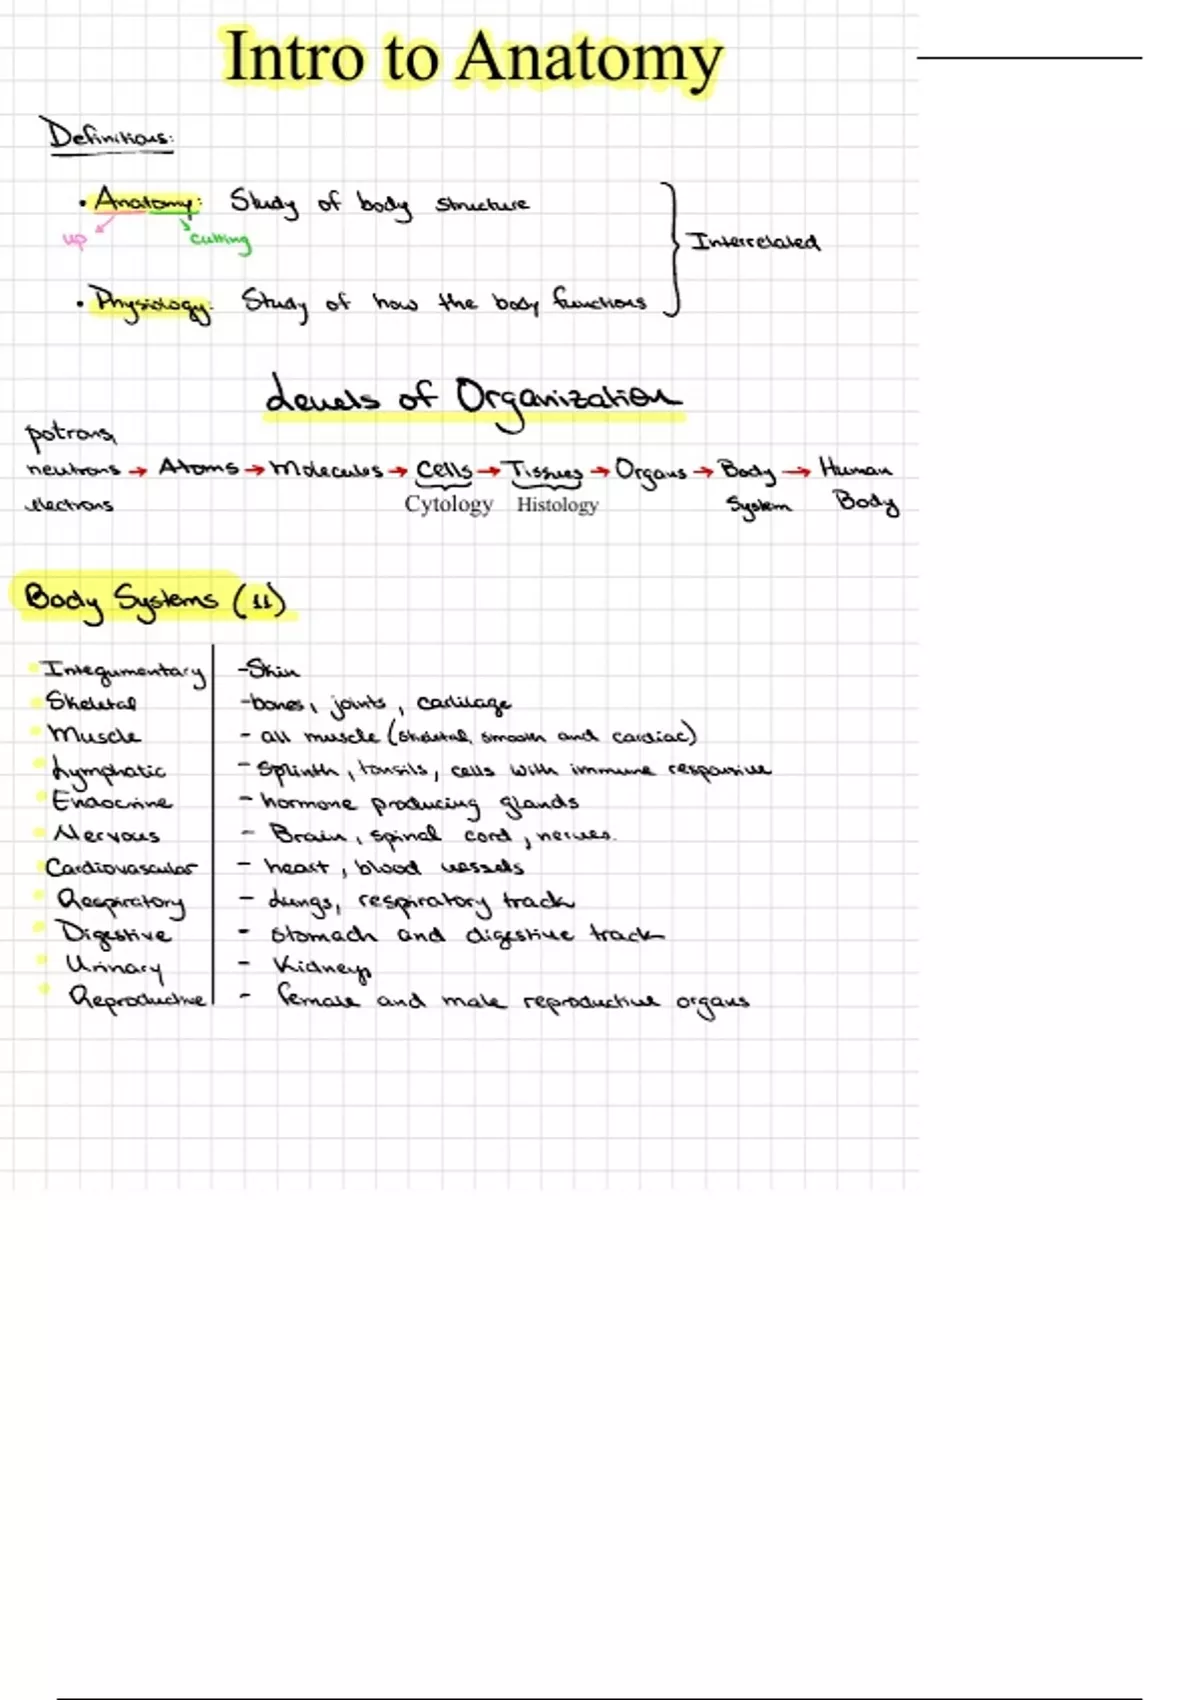 Intro to Anatomy
Definitions:
• Anatomy: Study of body structure
up cutting
Interrelated
• Physiology: Study of how the body functions
Levels of Organization
potrons,
neutrons → Atoms → Molecules → Cells → Tissues → Organs → Body → Human
electrons Cytology Histology System Body
Body Systems (11)
Integumentary - Skin
Skeletal - bones, joints, cartilage
Muscle - all muscle (skeletal, smooth and cardiac)
Lymphatic - Splinth, tonsils, cells with immune responsive
Endocrine - hormone producing glands
Nervous - Brain, spinal cord, nerves.
Cardiovascular - heart, blood vessels
Respiratory - Lungs, respiratory track
Digestive - stomach and digestive track
Urinary - Kidneys
Reproductive - female and male reproductive organs